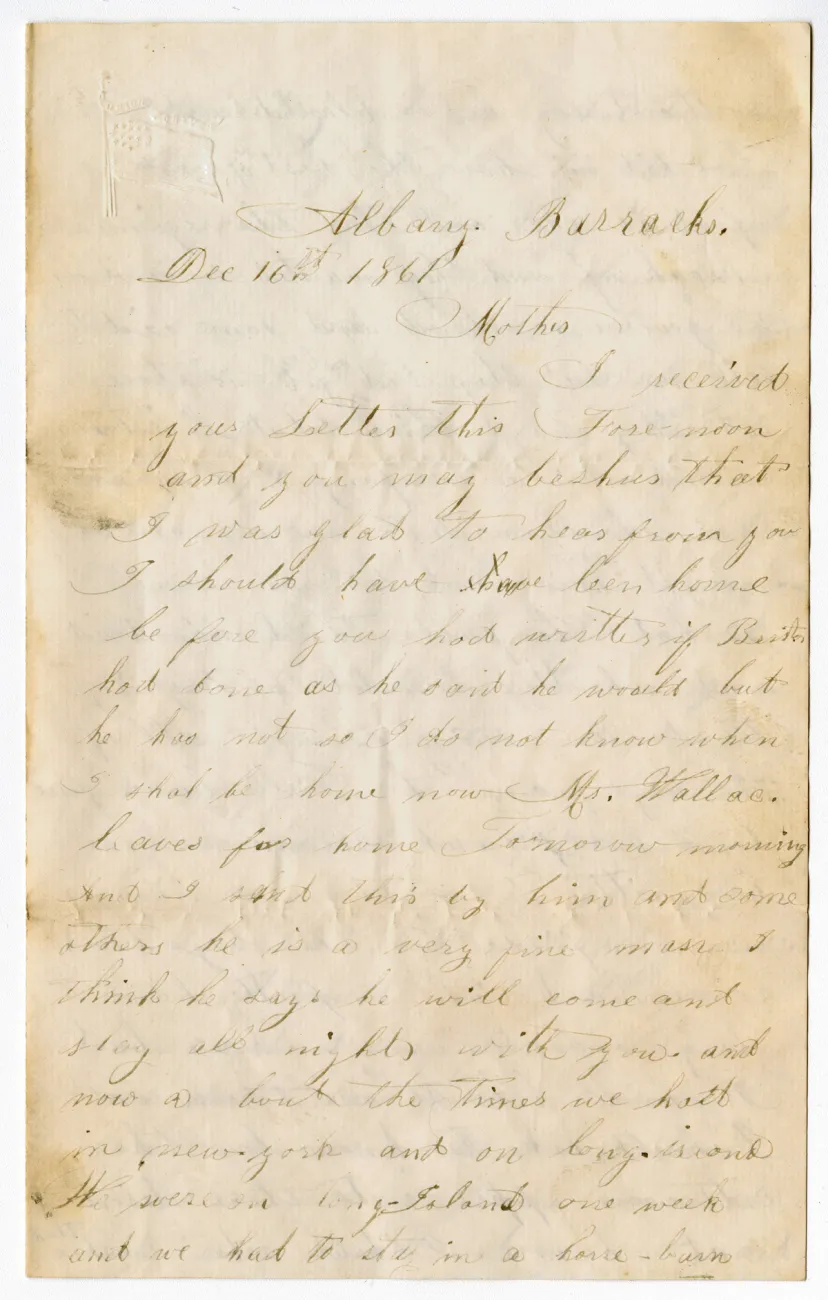 Albany Barracks.
Dec 16th 1861
Mother
I received
your Letter this Fore-noon
and you may beshur that
I was glad to hear from you
I should have have been home
be fore you had writter if
had done as he said he would but
he has not so I do not know when
I shal be home now Mr. Wallac.
leaves for home Tomorow morning
And I sind this by him and some
others he is a very fine man I
think he says he will come and
stay all night with you. and
now a bout the times we hatt
in new-york and on long.iseond
We were on Long-Island one week
and we had to sty in a horse-barn